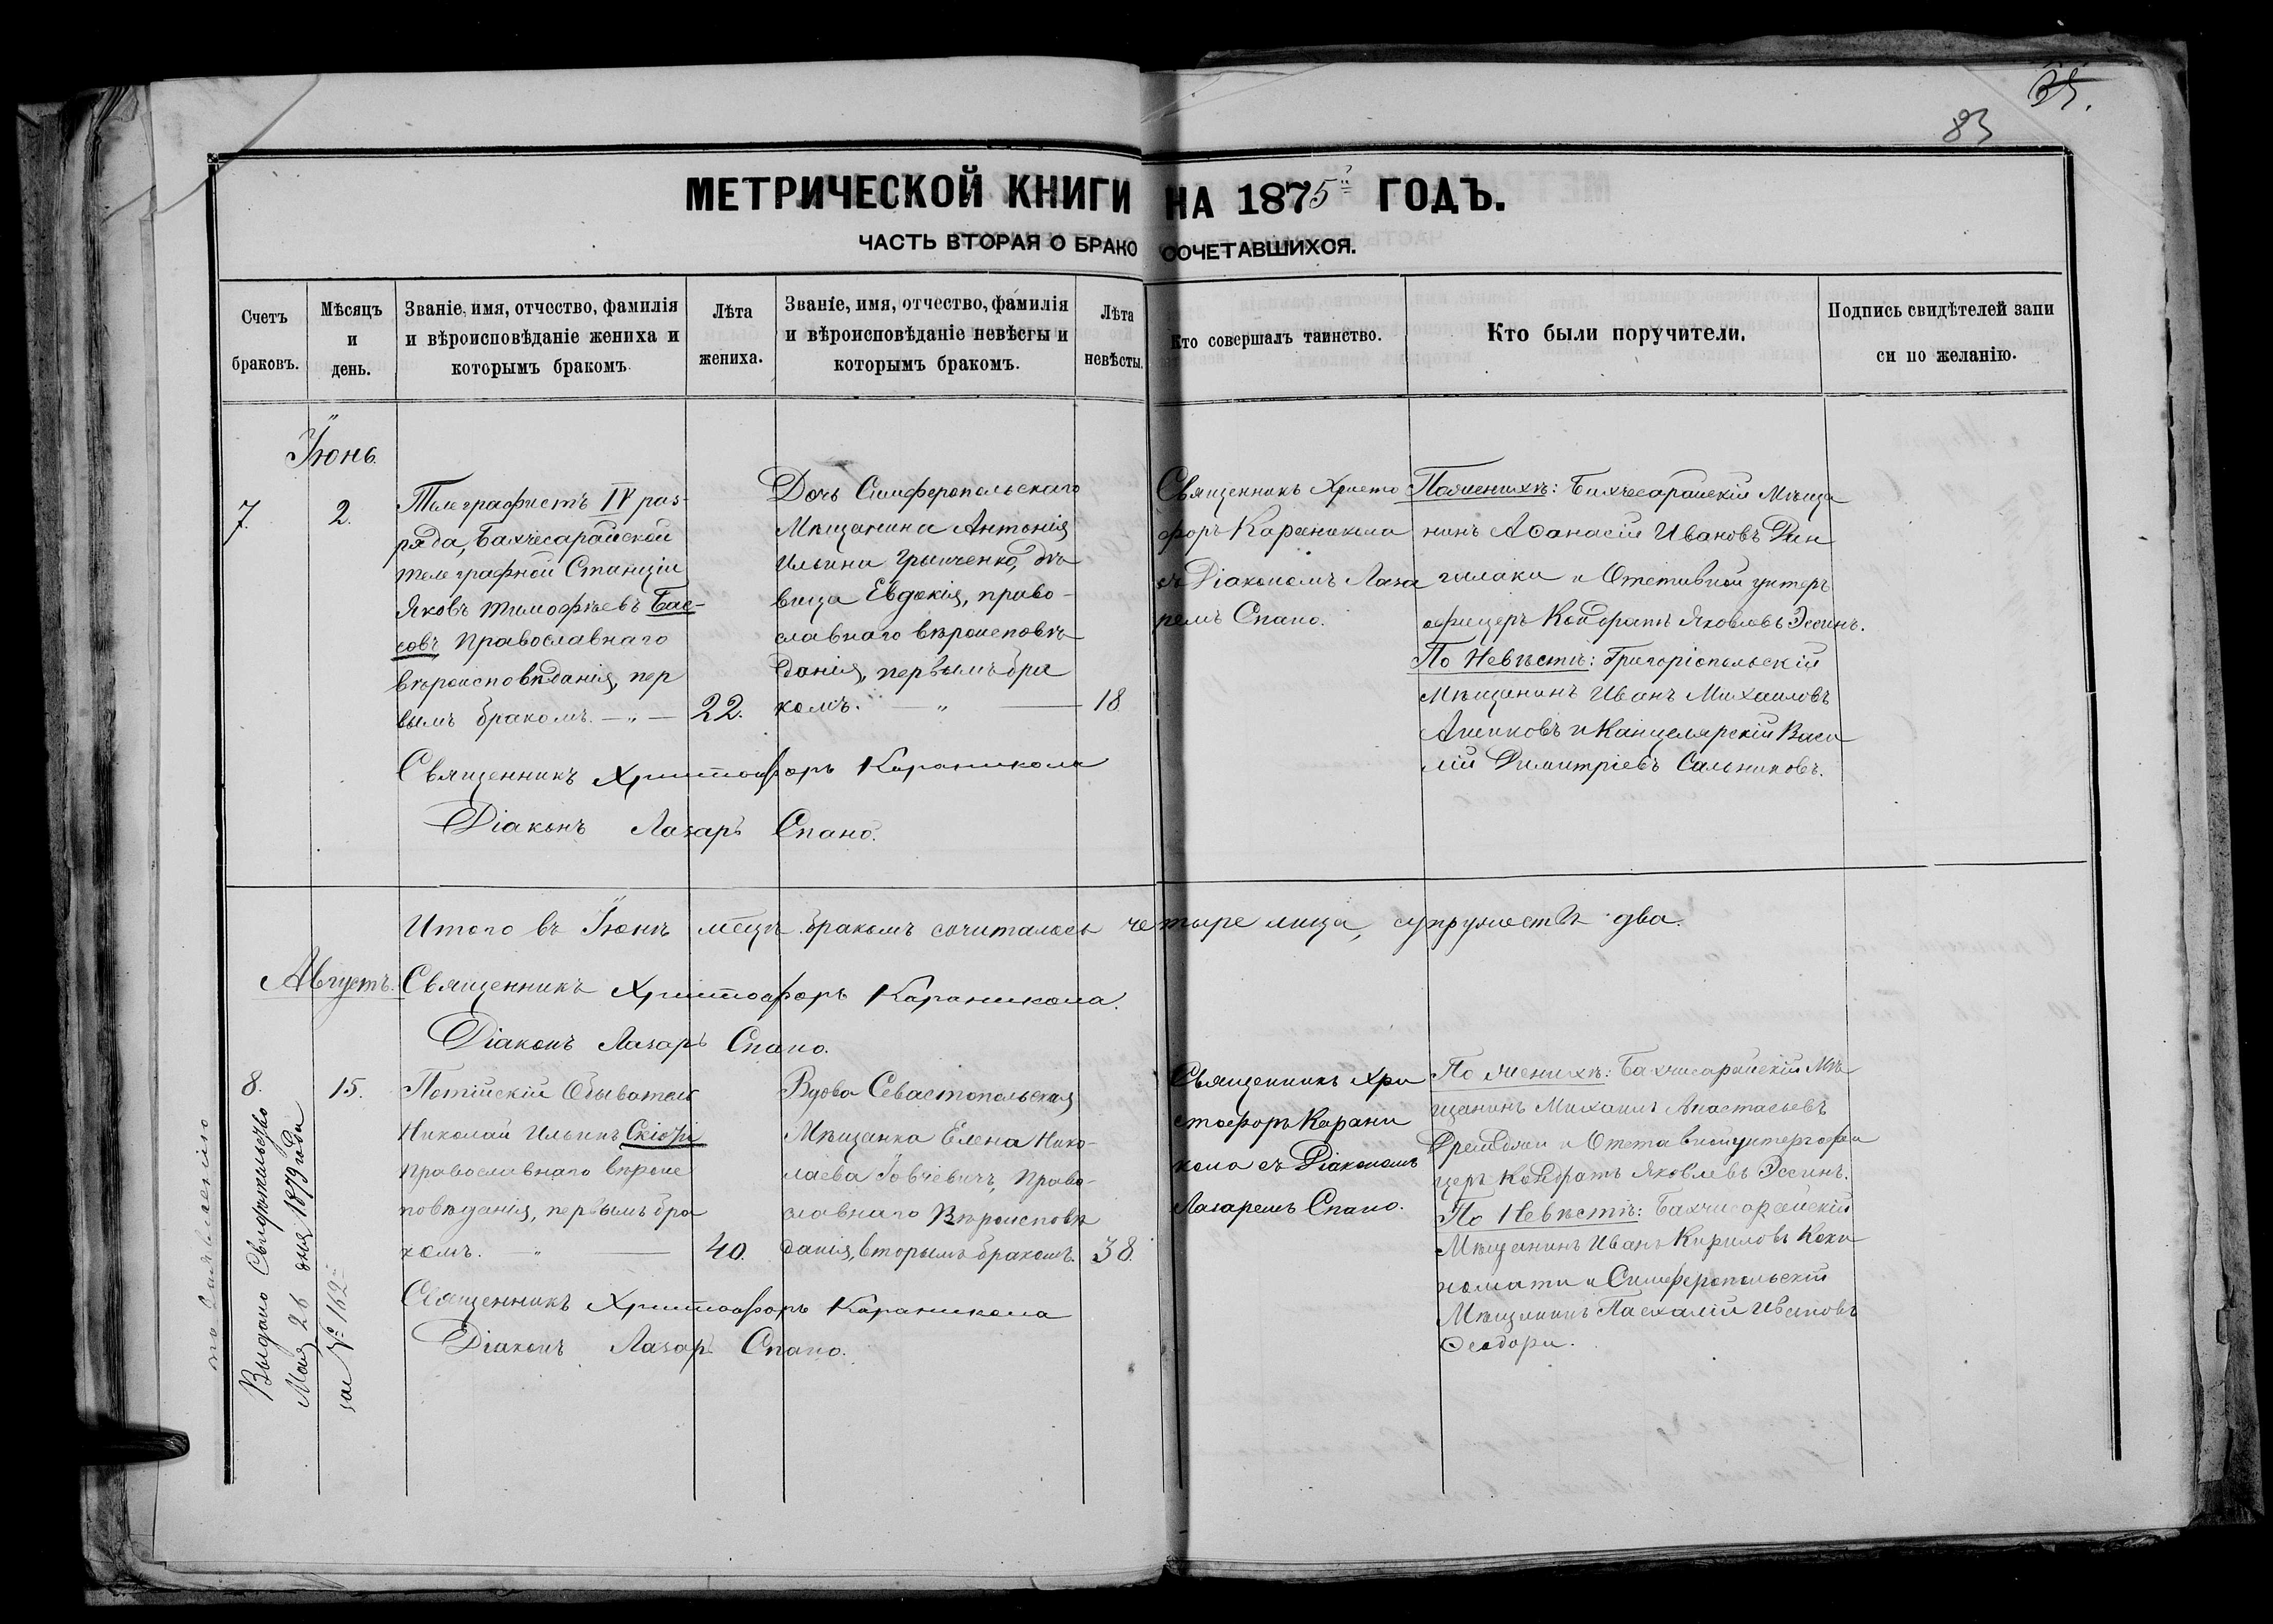 35.
83
МЕТРИЧЕСКОЙ КНИГИ НА 1875й ГОДЪ.
ЧАСТЬ ВТОРАЯ О БРАКОСОЧЕТАВШИХСЯ.
Счетъ
браковъ.
Мѣсяцъ
и
день.
Званіе, имя, отчество, фамилія
и вѣроисповѣданіе жениха и
которымъ бракомъ
Лѣта
жениха.
Званіе, имя, отчество, фамилія
и вѣроисповѣданіе невѣсты и
которымъ бракомъ.
Лѣта
невѣсты.
Кто совершалъ таинство.
Кто были поручители.
Подпись свидѣтелей запи
си по желанію.
Іюнь.
7.
2.
Телеграфистъ IV раз-
ряда, Бахчесарайской
телеграфной Станціи
Яковъ Тимофѣевъ Бас-
совъ Православнаго
вѣроисповѣданія, пер
вымъ бракомъ. — „ —
22.
Дочь Симферопольскаго
Мѣщанина Антонія
Ильина Гринченко, дѣ
вица Евдокія, право-
славнаго вѣроисповѣ
данія, первымъ бра
комъ. — „ —
18
Священникъ Христо
форъ Караникола
съ Діакономъ Лаза
ремъ Спано.
По женихѣ: Бахчесарайскій Мѣща
нинъ Аѳанасій Ивановъ
и Отставной унтеръ
офицеръ Кондратъ Яковлевъ Эссинъ.
По Невѣстѣ: Григоріопольскій
Мѣщанинъ Иванъ Михаиловъ
и Канцелярскій Васи
лій Димитріевъ Сальниковъ.
Священникъ Христофоръ Караникола
Діаконъ Лазаръ Спано.
Итого въ Іюнѣ мѣцѣ бракомъ сочиталось четыре лица, супружествъ два.
Августъ.
Священникъ Христофоръ Караникола.
Діаконъ Лазаръ Спано.
8.
15.
Потійскій Обыватель
Николай Ильинъ
Православнаго вѣроис
повѣданія, первымъ бра
комъ. — „ —
40.
Вдова Севастопольская
Мѣщанка Елена Нико-
лаева Іовчевичъ, Право-
славнаго Вѣроисповѣ
данія, вторымъ бракомъ.
38.
Священникъ Хри
стофоръ Карани
кола съ Діакономъ
Лазаремъ Спано.
По женихѣ: Бахчисарайскій Мѣ
щанинъ Михаилъ Анастасьевъ
и Отставной унтеръ офи
церъ Кондратъ Яковлевъ Эссинъ.
По Невѣстѣ: Бахчисарайскій
Мѣщанинъ Иванъ Кириловъ Коки
номати и Симферопольскій
Мѣщанинъ Пасхалій Ивановъ
Ѳеодори.
Священникъ Христофоръ Караникола
Діаконъ Лазаръ Спано.
Выдано Свидѣтельство
Мая 26 дня 1879 года
за № 162